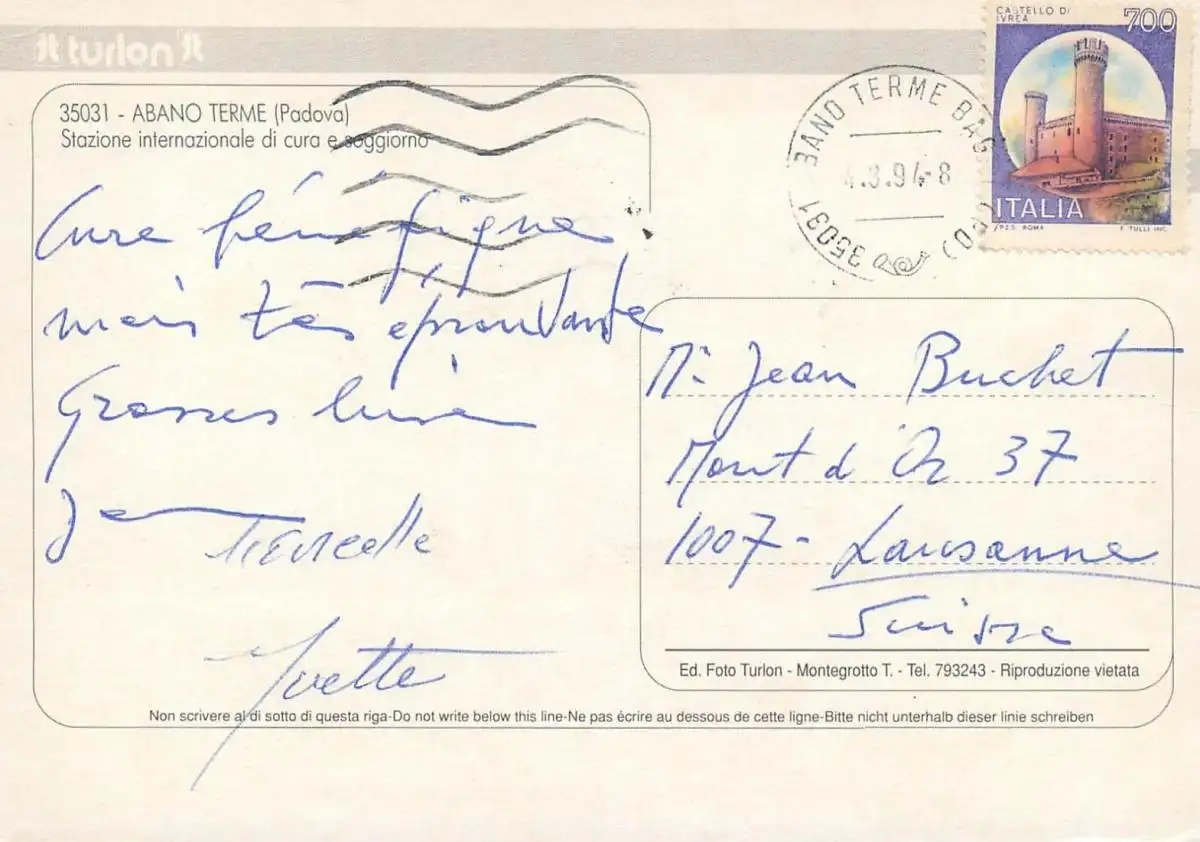 turlon
CASTELLO DI
IVREA
700
ITALIA
I.P.Z.S. ROMA
F. TULLI INC.
35031 - ABANO TERME (Padova)
Stazione internazionale di cura e soggiorno
BANO TERME BAG
.3.94-8
35031
(PD)
Cure bénéfique
mais très éprouvante
Grosses
Marcelle
Yvette
Mr Jean Buchet
Mont d'Or 37
1007 - Lausanne
Suisse
Ed. Foto Turlon - Montegrotto T. - Tel. 793243 - Riproduzione vietata
Non scrivere al di sotto di questa riga-Do not write below this line-Ne pas écrire au dessous de cette ligne-Bitte nicht unterhalb dieser linie schreiben